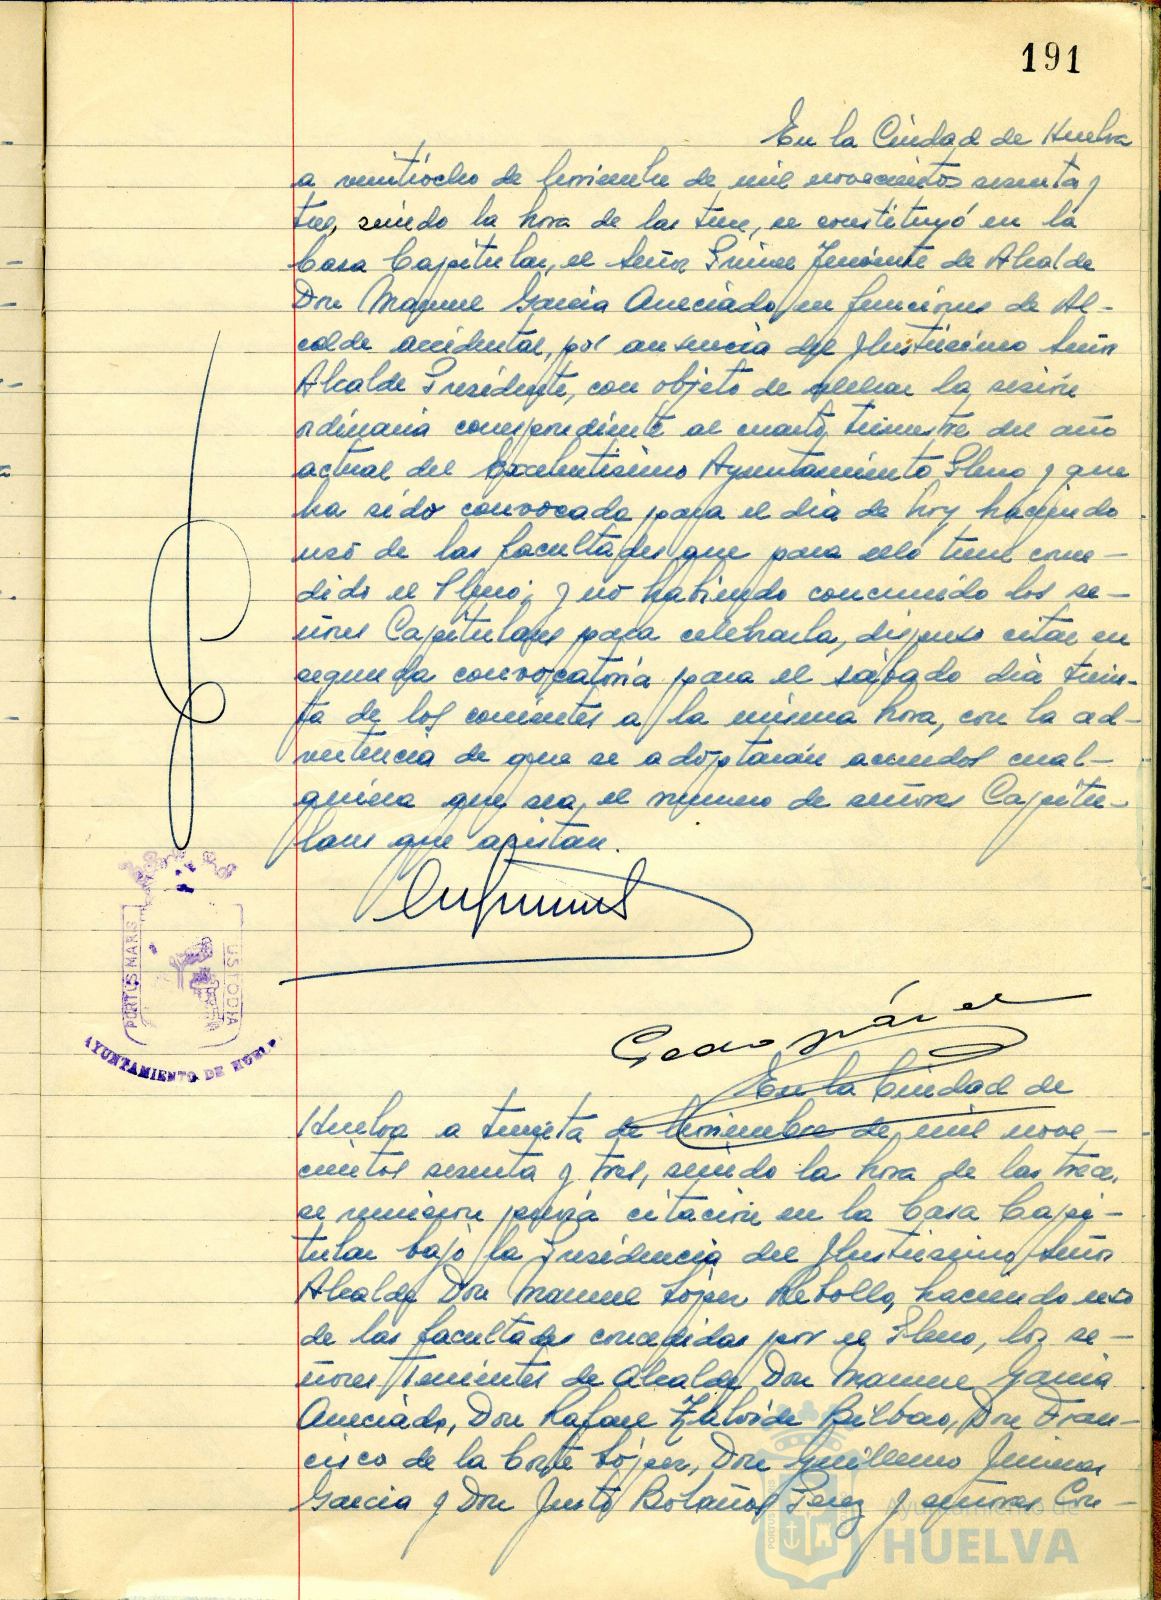 191
En la Ciudad de Huelva
a veintiocho de Noviembre de mil novecientos sesenta y
tres, siendo la hora de las trece, se constituyó en la
Casa Capitular, el Señor Primer Teniente de Alcalde
Don Manuel García en funciones de Al-
calde accidental, por ausencia del Ilustrísimo Señor
Alcalde Presidente, con objeto de celebrar la sesión
ordinaria correspondiente al cuarto trimestre del año
actual del Excelentísimo Ayuntamiento Pleno y que
ha sido convocada para el día de hoy haciendo
uso de las facultades que para ello tiene conce-
dido el Pleno; y no habiendo concurrido los se-
ñores Capitulares para celebrarla, dispuso citar en
segunda convocatoria para el sábado día trein-
ta de los corrientes a la misma hora, con la ad-
vertencia de que se adoptarán acuerdos cual-
quiera que sea, el numero de señores Capitu-
lares que asistan.
PORTUS MARIS
USTODIA
AYUNTAMIENTO DE HUELV
En la Ciudad de
Huelva a treinta de Noviembre de mil nove-
cientos sesenta y tres, siendo la hora de las trece,
se reunieron previa citación en la Casa Capi-
tular bajo la Presidencia del Ilustrísimo Señor
Alcalde Don Manuel López Rebollo, haciendo uso
de las facultades concedidas por el Pleno, los se-
ñores Tenientes de Alcalde Don Manuel García
Don Rafael Bilbao, Don Fran-
cisco de la Corte López, Don Guillermo Jimenez
García y Don Justo Bolaños Perez y señores Con-
Ayuntamiento de
HUELVA